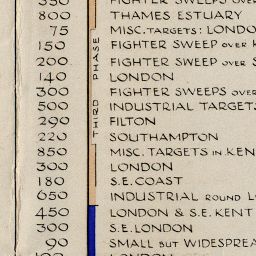 350 FIGHTER SWEEPS OVER
800 THAMES ESTUARY
75 MISC. TARGETS: LONDO
150 FIGHTER SWEEP OVER
200 FIGHTER SWEEP OVER
140 LONDON
300 FIGHTER SWEEPS OVER
500 INDUSTRIAL TARGET
290 FILTON
220 SOUTHAMPTON
850 MISC. TARGETS IN KEN
300 LONDON
180 S.E. COAST
650 INDUSTRIAL ROUND L
450 LONDON & S.E. KENT
300 S.E. LONDON
90 SMALL BUT WIDESPREA
LONDON
THIRD PHASE